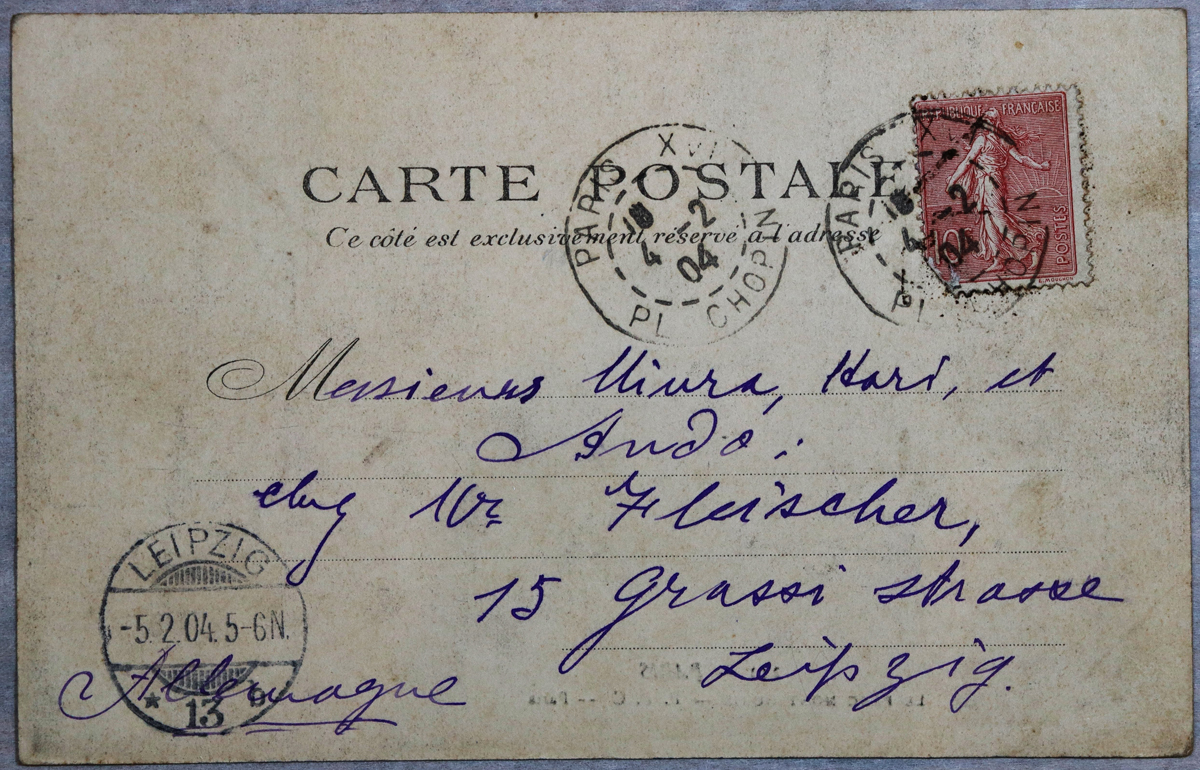 CARTE POSTALE
Ce côté est exclusivement réservé à l'adresse
PARIS XVI
18
4 -2
04
PL CHOPIN
PARIS XVI
18
4 -2
04
PL CHOPIN
REPUBLIQUE FRANÇAISE
10
POSTES
E. MOUCHON
Messieurs Miura, Hori, et
Andō:
chez Mr Fleischer,
15 Grassi strasse
Leipzig.
Allemagne
LEIPZIG
-5.2.04.5-6N.
* 13